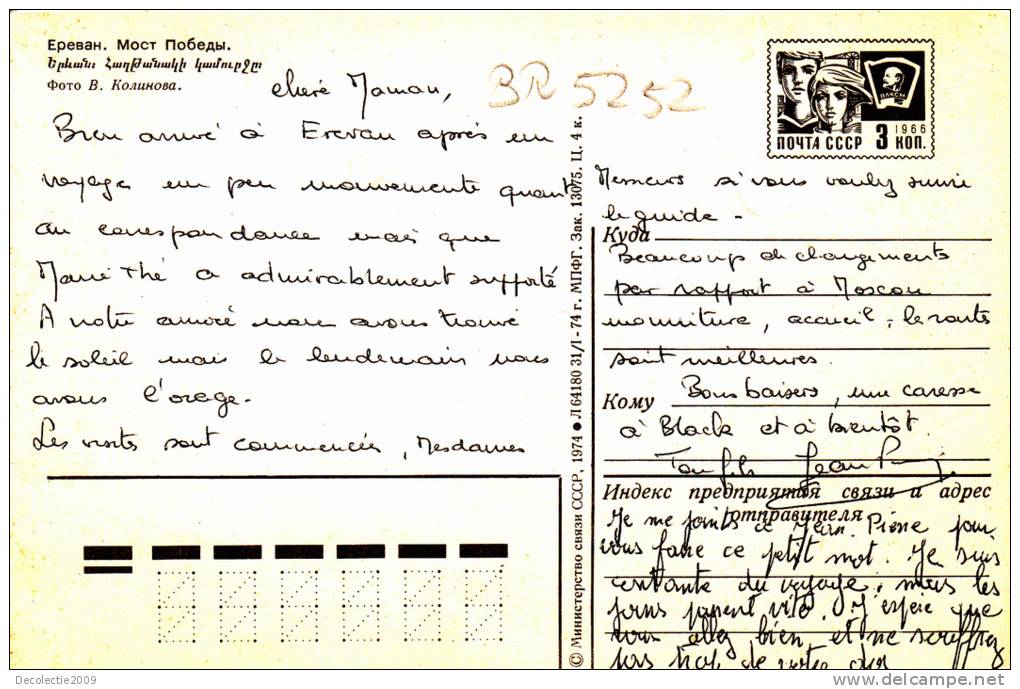 Ереван. Мост Победы.
Երևան։ Հաղթանակի կամուրջը։
Фото В. Колинова.
BR 5252
ПОЧТА СССР 3 КОП.
1966
ВЛКСМ
Chère Maman,
Bien arrivé à Erevan après un
voyage un peu mouvementé quant
au correspondance mais que
Marie Thé a admirablement supporté
A notre arrivé nous avons trouvé
le soleil mais le lendemain nous
avons l'orage.
Les visites sont commencées, Mesdames
Messieurs si vous voulez suivre
le guide -
Куда
Beaucoup de changements
par rapport à Moscou
nourriture, accueil, le routs
sont meilleures.
Кому
Bons baisers, une caresse
à Black et à bientôt.
Ton fils Jean P
Индекс предприятия связи и адрес
отправителя
Je me joints à Jean Pierre pour
vous faire ce petit mot. Je suis
contente du voyage, mais les
jours passent vite. J'espère que
vous allez bien et ne souffrez
pas trop de votre dos
© Министерство связи СССР, 1974 ● Л 64180 31/I-74 г. МПФГ. Зак. 13075. Ц. 4 к.
Decolectie2009
www.delcampe.net